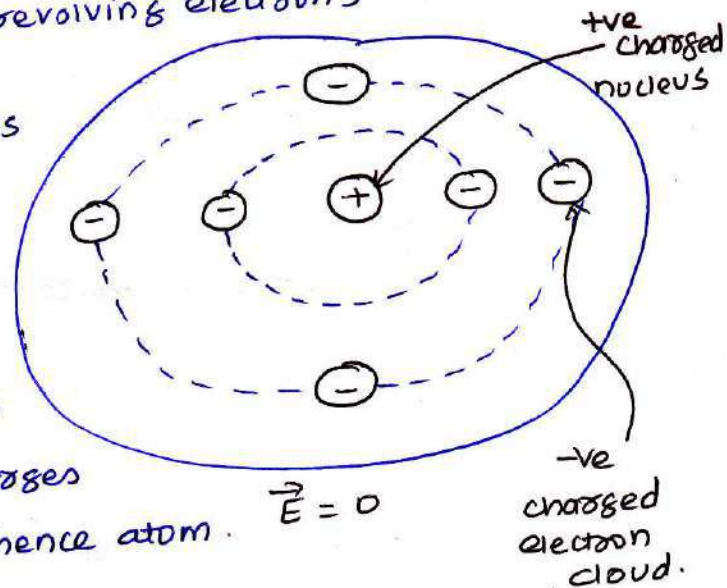 revolving electrons
+ve
charged
nucleus
s
-
-
-
+
-
-
-
rges
hence atom.
E⃗ = 0
-ve
charged
electron
cloud.